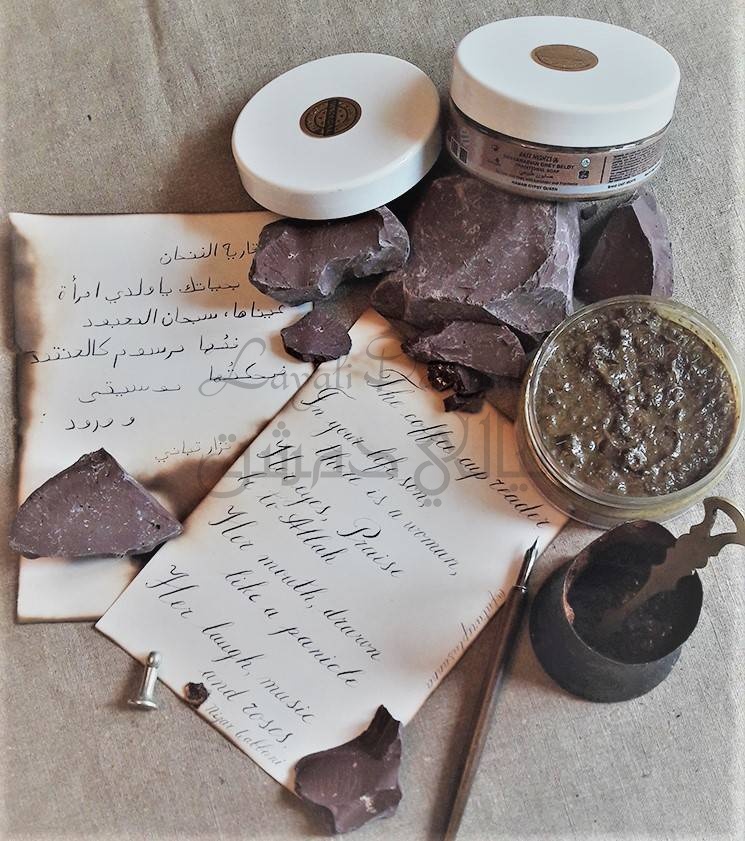 قارية الفنجان
بحياتك يا ولدي امرأة
عيناها، سبحان المعبود
فمُها مرسوم كالعنقود
ضحكتُها موسيقى
و ورود
نزار قباني
The coffee cup reader
In your life son,
there is a woman,
Her eyes, Praise
be Allah
Her mouth, drawn
like a panicle
Her laugh, music
and roses.
Nizar Kabbani
GREY BELDI
HAMAM GYPSY QUEEN
Layali
ليالي دمشق